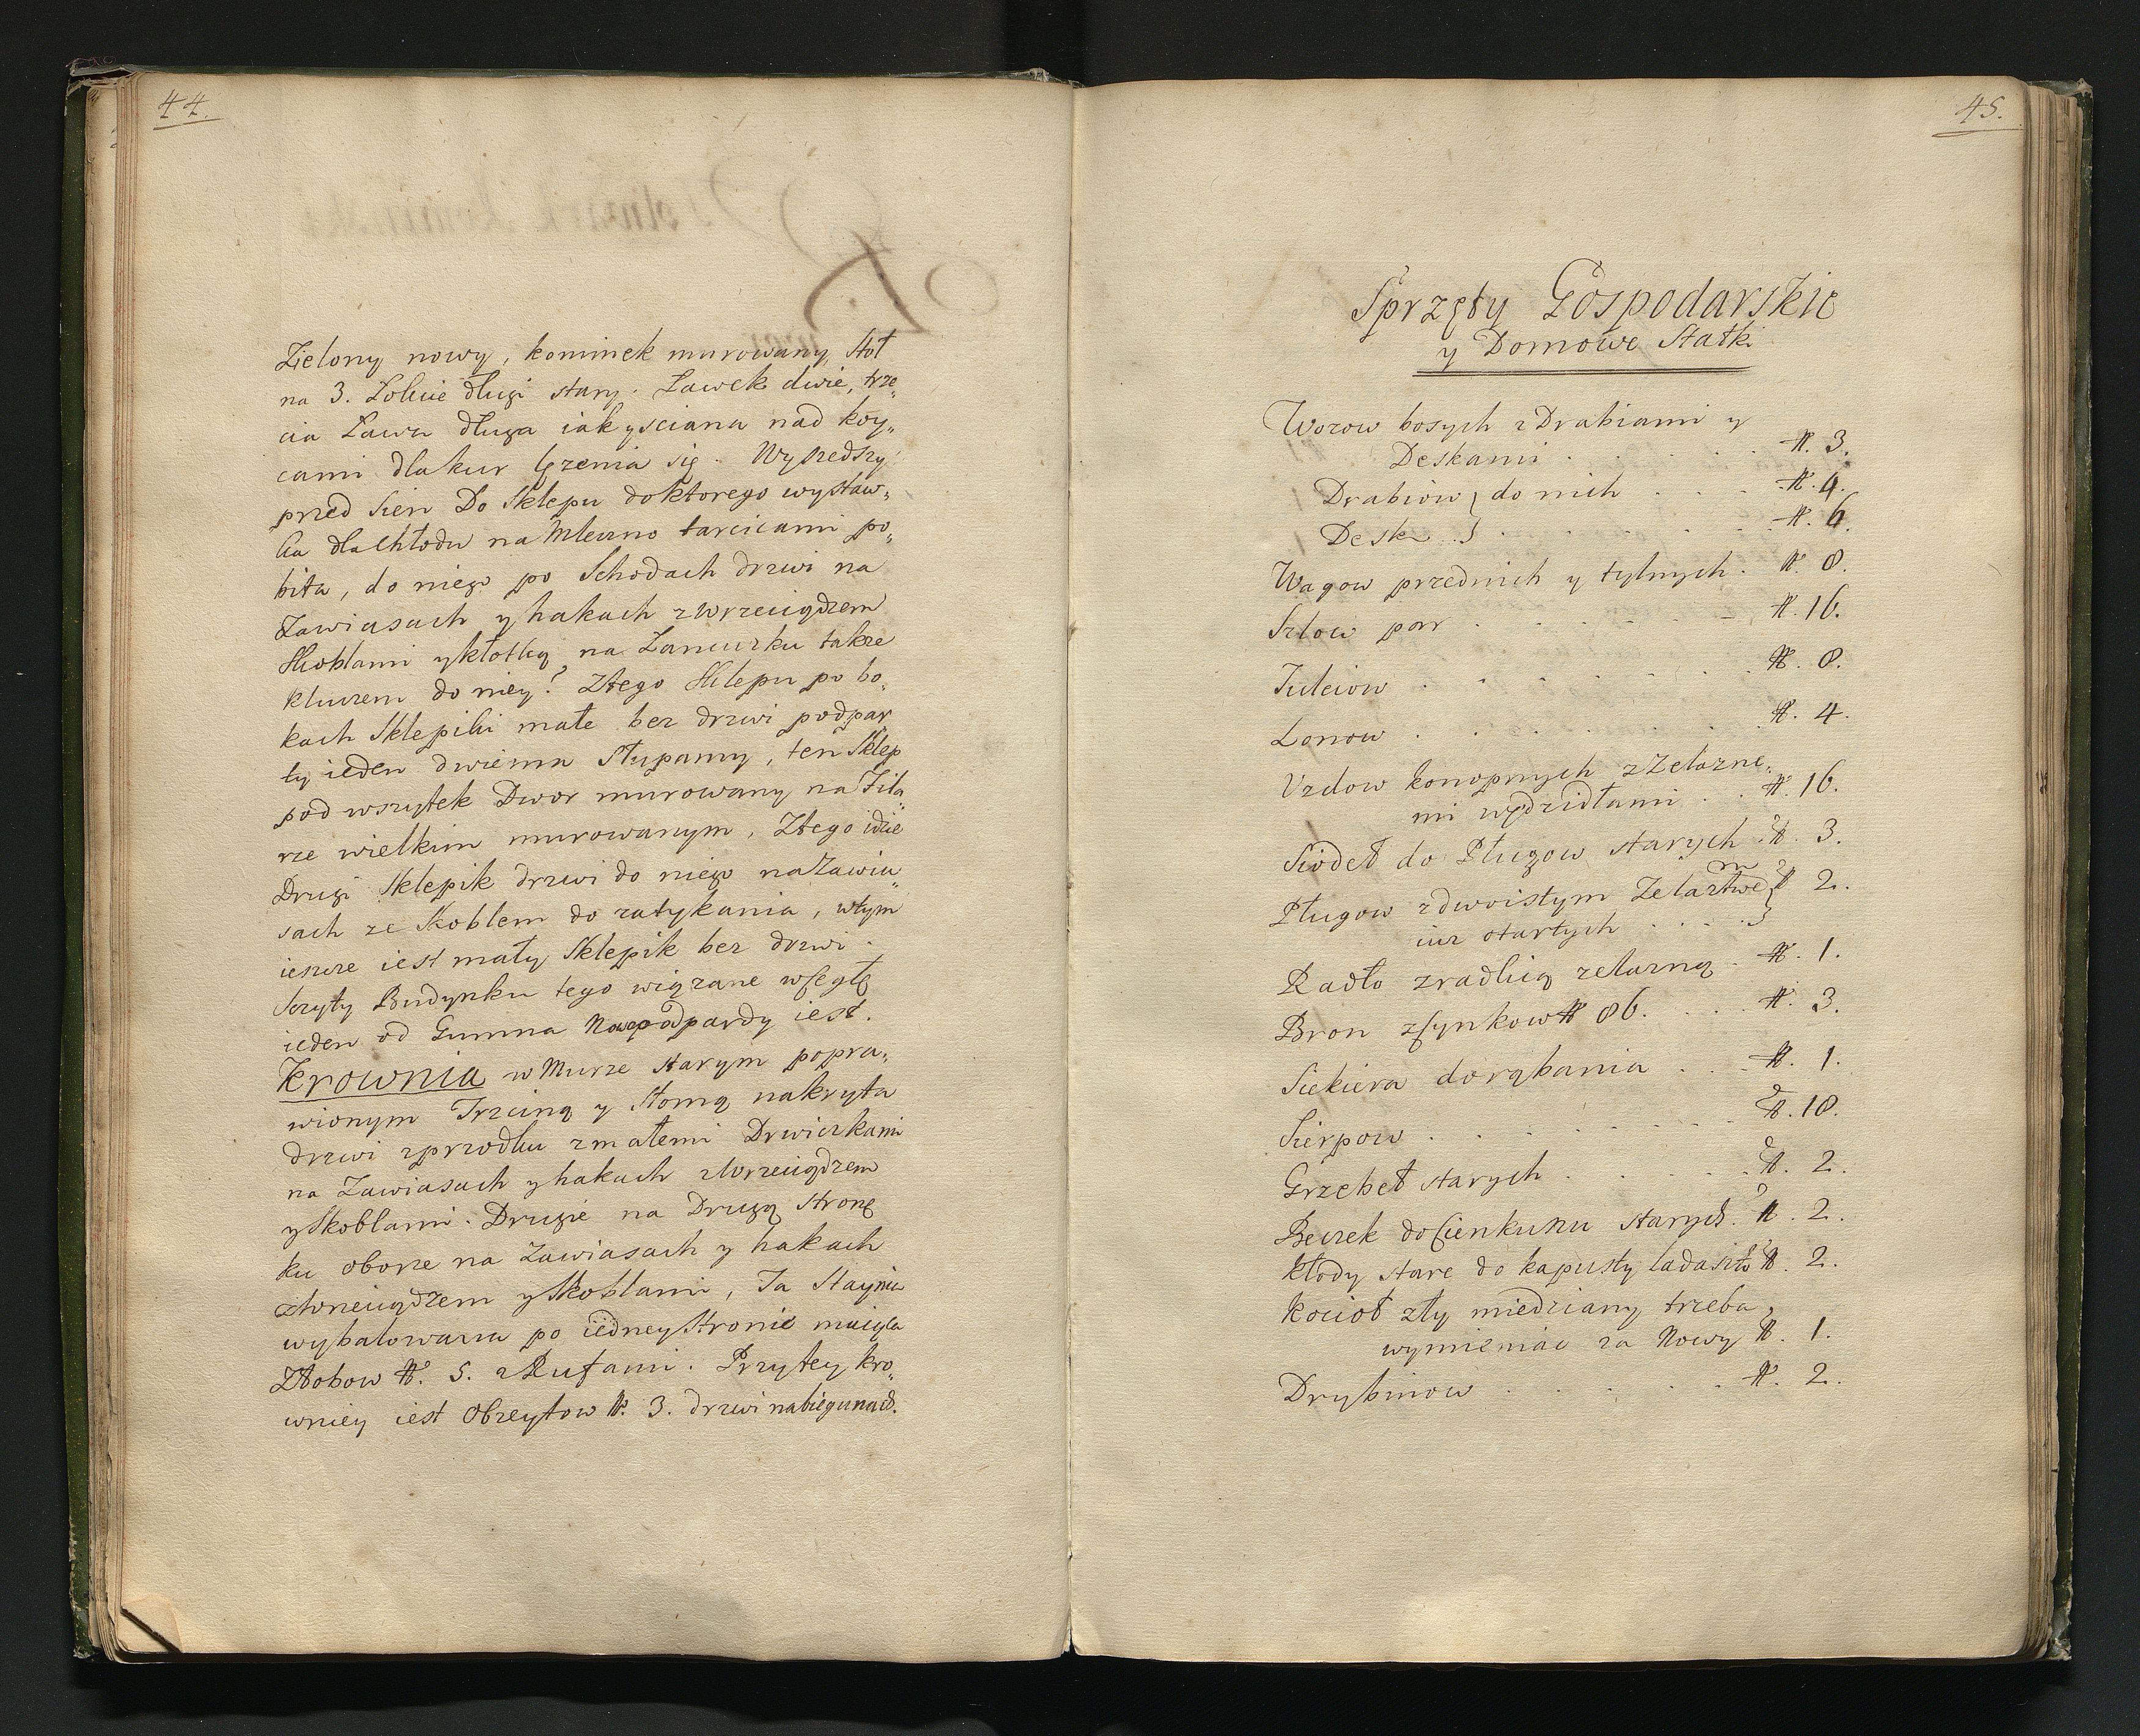 44.
Zielony nowy, kominek murowany, Stoł
na 3. Łokcie długi stary. Ławek dwie, trze„
cia Ława długa iak y sciana nad koy„
cami dla kur lęzenia się. Wyszedszy
przed Sien Do Sklepu do ktorego wystaw„
ka dla chłodu na Mleczno tarcicami po„
bita, do niego po Schodach drzwi na
Zawiasach y hakach z Wrzeciądzem
Skoblami y kłotką na Łancuzku takze
kluczem do niey. Z tego Sklepu po bo„
kach Sklepiki małe bez drzwi podpar„
ty ieden dwiema Słupamy, ten Sklep
pod wszytek Dwor murowany na Fila„
rze wielkim murowanym, Z tego idzie
Drugi Sklepik drzwi do niego na Zawia„
sach ze Skoblem do zatykania, w tym
ieszcze iest mały Sklepik bez drzwi.
Sczyty Budynku tego wiązane w Cegłę
ieden od Gumna iest.
Krownia w Murze starym popra„
wionym Trzciną y Słomą nakryta
drzwi z przodku z małemi Drwiczkami
na Zawiasach y hakach z Wrzeciądzem
y Skoblami. Drugie na Drugą stronę
ku oborze na Zawiasach y hakach
z Wrzeciądzem y Skoblami, Ta Staynia
wybalowana po iedney Stronie maiąca
Złobow N. 5. z Kufami. Przy tey kro„
wniey iest Obreytow N. 3. drzwi na biegunach.
45.
Sprzęty Gospodarskie
y Domowe Statki
Wozow bosych z Drabiami y
Deskami . . . . . N. 3.
Drabiow } do nich . . . N. 4.
Desk } . . . . . N. 6.
Wagow przednich y tylnych. N. 8.
Szlow par . . . . . . N. 16.
Juleiow . . . . . . . N. 8.
Lonow . . . . . . . N. 4.
Uzdow konopnych z Zelazne„
mi wędzidłami . . N. 16.
Siodeł do Pługow starych. N. 3.
Pługow z dwoistym Zelaztwem } N. 2.
iuz otartych . . . . }
Radło z radlicą zelazną . N. 1.
Bron z synkow N. 86. . . . N. 3.
Siekiera do rąbania . . . N. 1.
Sierpow . . . . . . . N. 18.
Grzebeł starych . . . . . N. 2.
Beczek do Cienkuszu starych. N. 2.
Kłody stare do kapusty ladaszto N. 2.
Kocioł zły miedziany trzeba
wymieniac za Nowy N. 1.
Drybinow . . . . . N. 2.